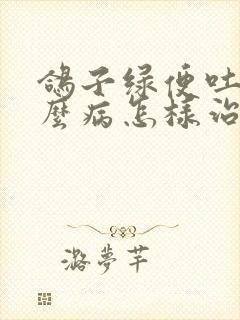 鸽子绿便吐
麼病怎样治
潞夢芊